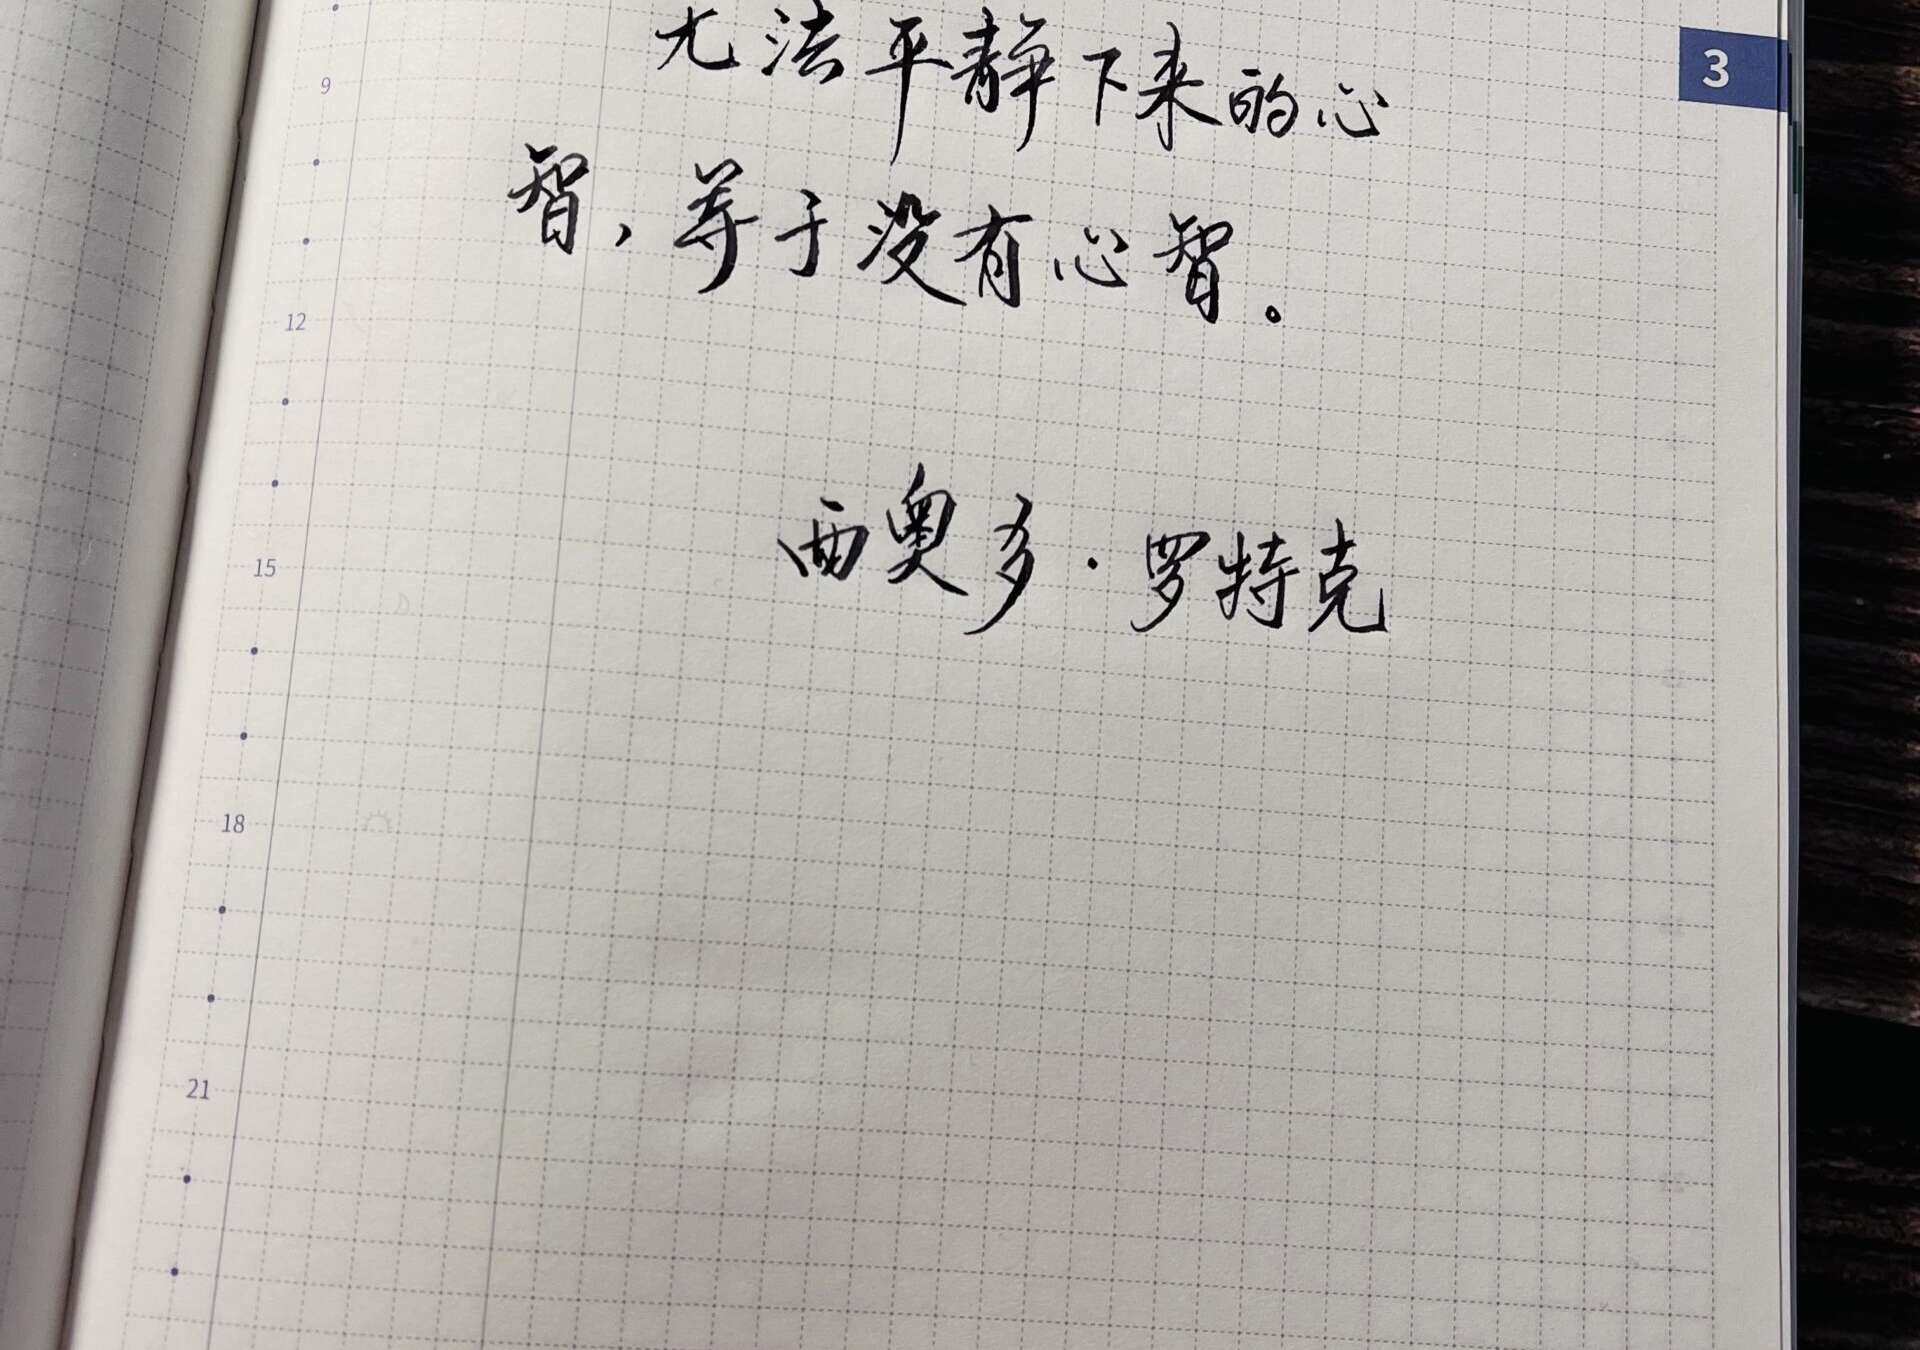 无法平静下来的心
智，等于没有心智。
西奥多·罗特克
3
9
12
15
18
21